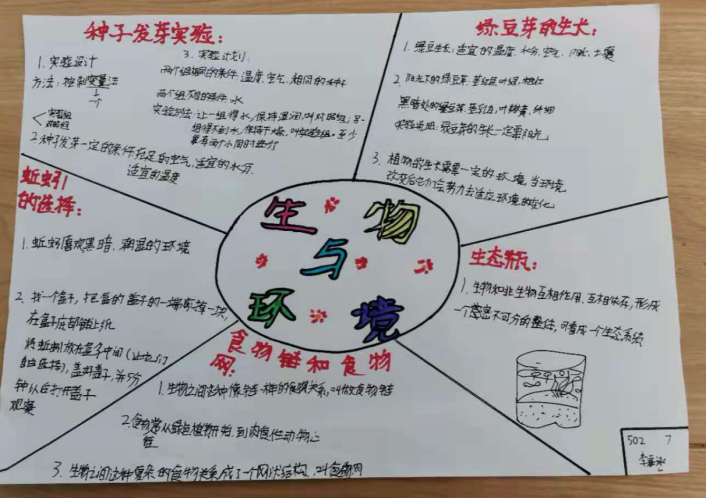 种子发芽实验:
1. 实验设计
方法: 控制变量法
一个
实验组
对照组
2. 种子发芽一定的条件充足的空气、适宜的水分、
适宜的温度
3. 实验计划:
两个组相同的条件: 温度、空气、相同的种子
两个组不同的条件: 水
实验方法: 让一组得水, 保持湿润, 叫对照组, 另一
组得不到水, 保持干燥, 叫实验组。至少
要有两个小同时进行
绿豆芽的生长:
1. 绿豆生长: 适宜的温度、水分、空气、阳光、土壤
2. 阳光下的绿豆芽: 茎红、叶绿、粗壮
黑暗处的绿豆芽: 茎白、叶黄、细
实验说明: 绿豆芽的生长一定需阳光
3. 植物的生长需要一定的环境, 当环境
改变后它们会努力去适应环境的变化
蚯蚓
的选择:
1. 蚯蚓喜欢黑暗、潮湿的环境
2. 找一个盒子, 把盒的盖子的一端剪掉一块,
在盒子底部铺上纸
将蚯蚓放在盒子中间(让它们
自由选择), 盖好盖子, 并5分
钟以后打开盖子
观察
生物
与
环境
生态瓶:
1. 生物和非生物互相作用、互相依存, 形成
一个密不可分的整体, 可看成一个生态系统
食物链和食物
网:
1. 生物之间这种像链一样的食物关系, 叫做食物链
2. 食物常从绿色植物开始, 到肉食性动物止
3. 生物之间这种复杂的食物关系成了一个网状结构, 叫食物网
502 7
李